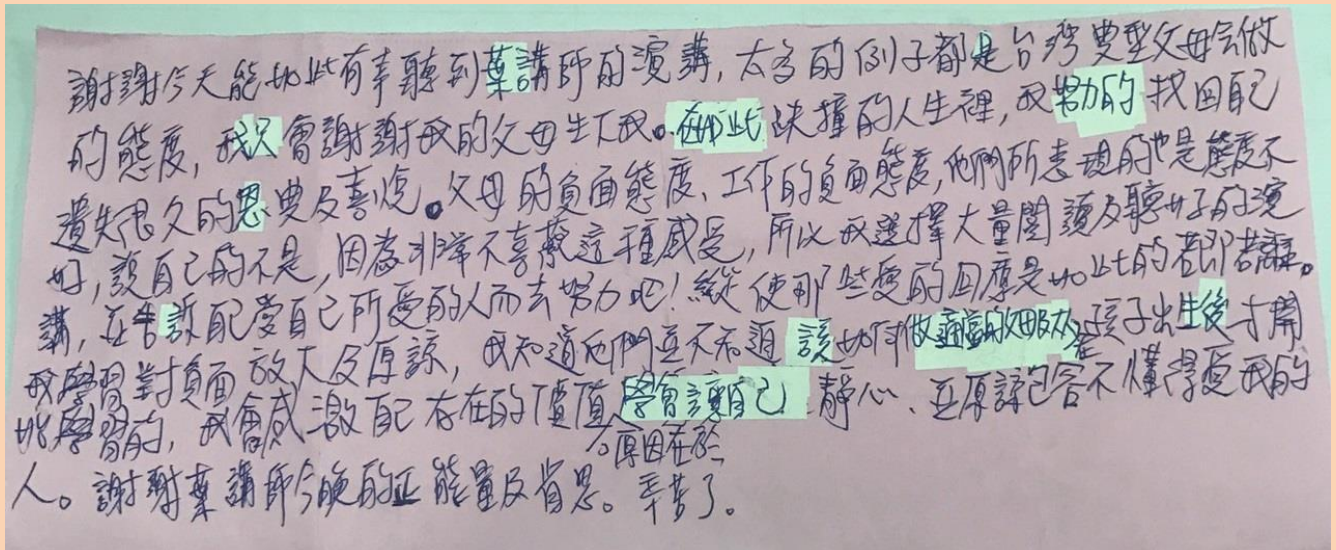 謝謝今天能如此有幸聽到葉講師的演講，太多的例子都是台灣典型父母會做
的態度，我只會謝謝我的父母生下我。在如此決撞的人生裡，我努力的找回自己
遺失很久的恩典及喜悅。父母的負面態度、工作的負面態度，他們所表現的也是態度不
好，說自己的不是，因為非常不喜歡這種感受，所以我選擇大量閱讀及聽好的演
講，在告訴自己愛自己所愛的人而去努力吧！縱使那些愛的回應是如此的若即若離。
我學習對負面放大及原諒，我知道他們並不知道該如何做適當的父母
孩子出生後才開
始學習的，我會感激自己存在的價值，學會讓自己靜心、並原諒包容不懂得愛我的
原因在於
人。謝謝葉講師今晚的正能量及省思。辛苦了。